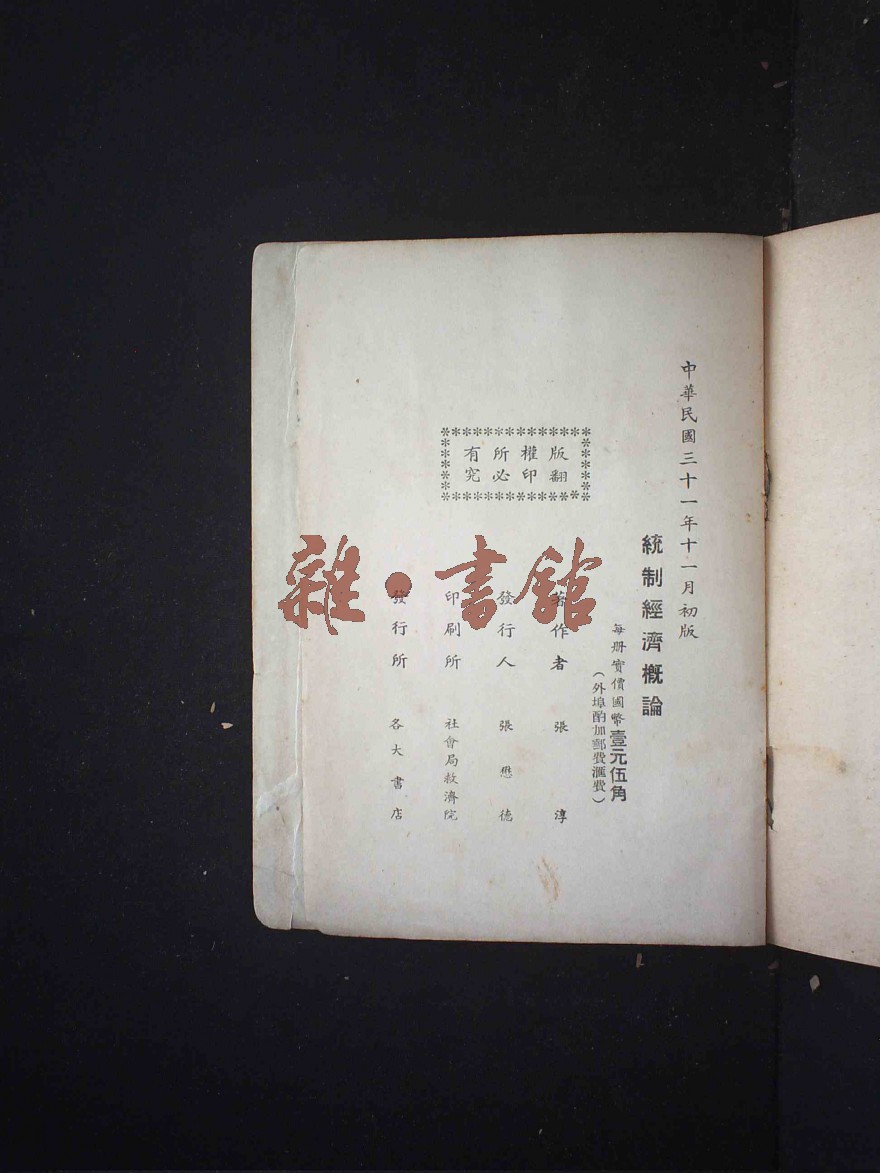 中華民國三十一年十一月初版
統制經濟概論
每册實價國幣壹元伍角
（外埠酌加郵費滙費）
著作者 張淳
發行人 張懋德
印刷所 社會局救濟院
發行所 各大書店
版權所有
翻印必究
雜·書館